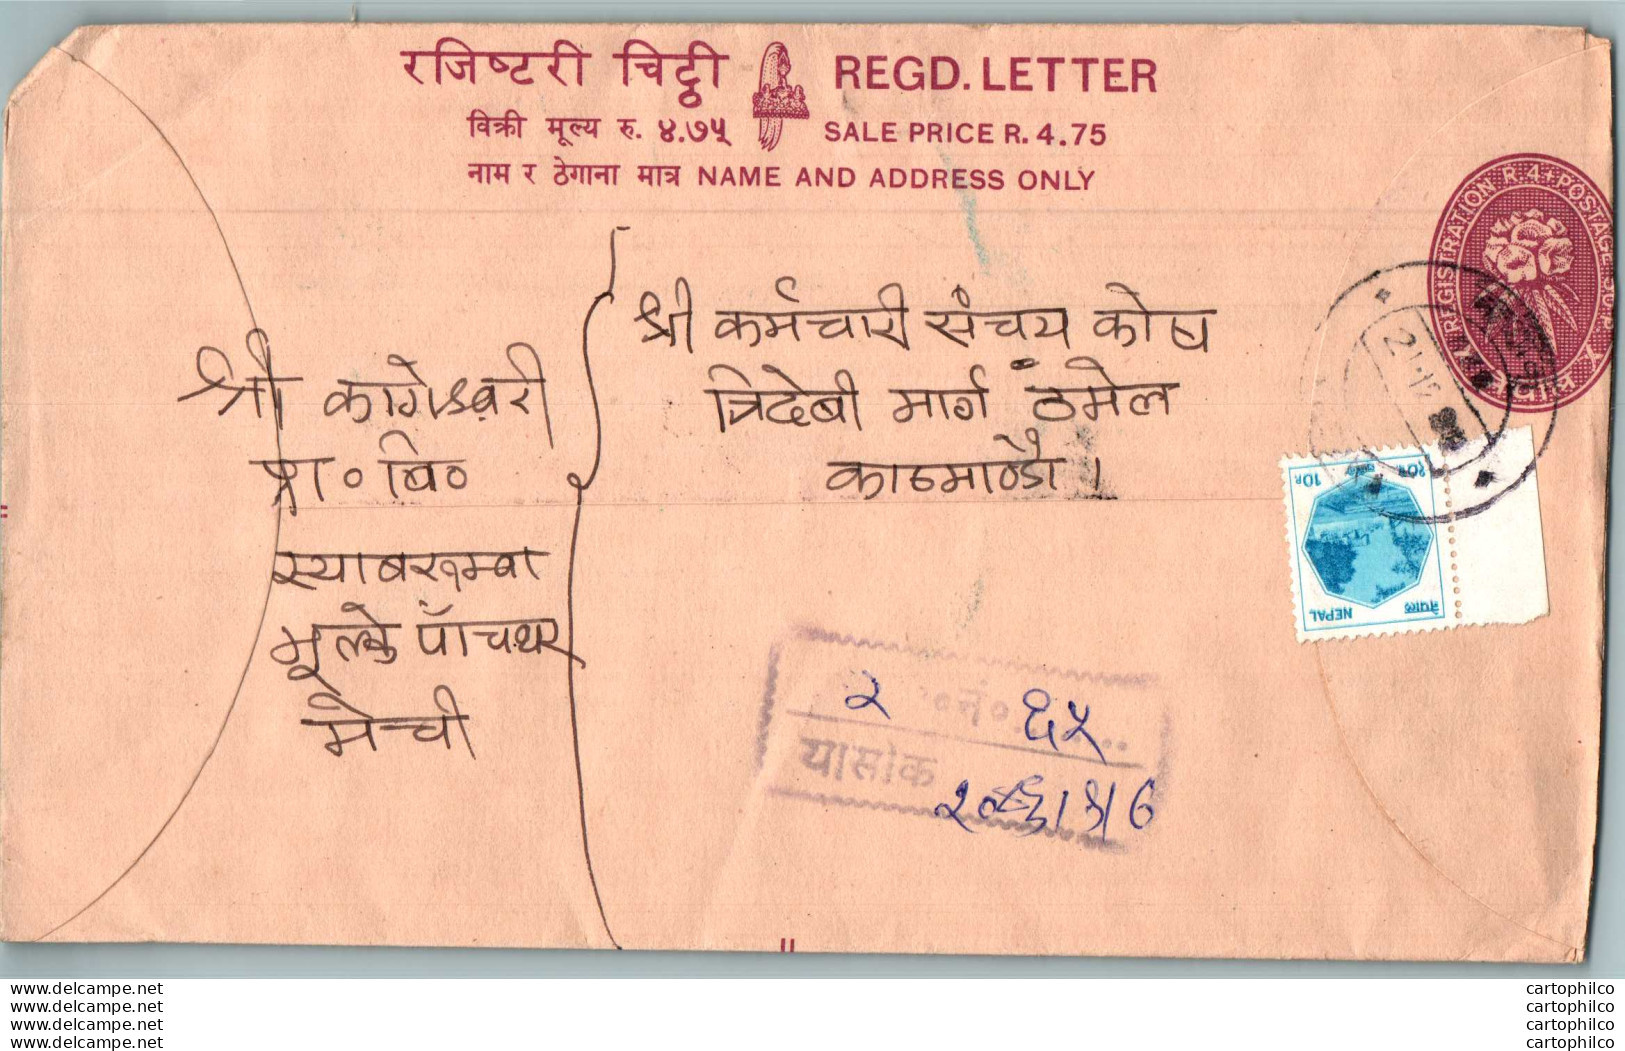 रजिष्टरी चिट्ठी REGD. LETTER
विक्री मूल्य रु. ४.७५ SALE PRICE R. 4.75
नाम र ठेगाना मात्र NAME AND ADDRESS ONLY
REGISTRATION R 4 + POSTAGE 50 P.
नेपाल
श्री कागेश्वरी
प्रा० बि०
स्याबरुम्बा
मेची
श्री कर्मचारी संचय कोष
त्रिदेबी मार्ग ठमेल
काठमाण्डौ।
नेपाल NEPAL
१०रु 10R
२ नं० ६५
यासोक
www.delcampe.net
www.delcampe.net
www.delcampe.net
www.delcampe.net
cartophilco
cartophilco
cartophilco
cartophilco